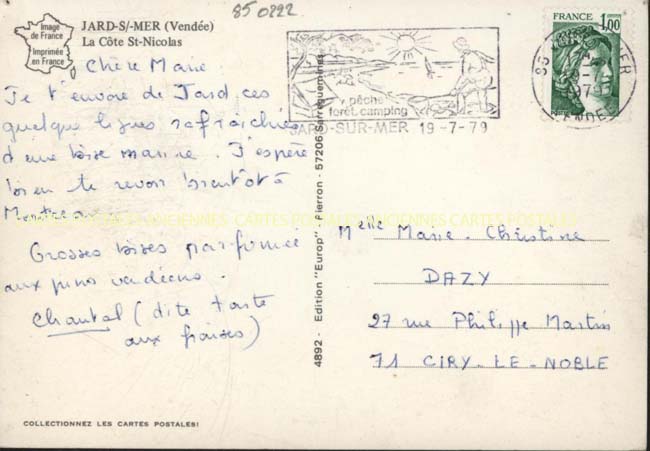 85 0222
Image
de France
Imprimée
en France
JARD-S/-MER (Vendée)
La Côte St-Nicolas
Chère Marie.
Je t'envoie de Jard, ces
quelques lignes rafraîchies
d'une bise marine. J'espère
bien te revoir bientôt à
Grosses bises parfumée
aux pins vendéens.
Chantal (dite tarte
aux fraises)
COLLECTIONNEZ LES CARTES POSTALES!
4892 - Edition "Europ" - Pierron - 57206 Sarreguemines
pêche
forêt.camping
JARD-SUR-MER 19-7-79
FRANCE
1,00
VENDEE
ANCIENNES CARTES POSTALES ANCIENNES CARTES POSTALES
Melle Marie-Christine
DAZY
27 rue Philippe Martin
71 CIRY-LE-NOBLE